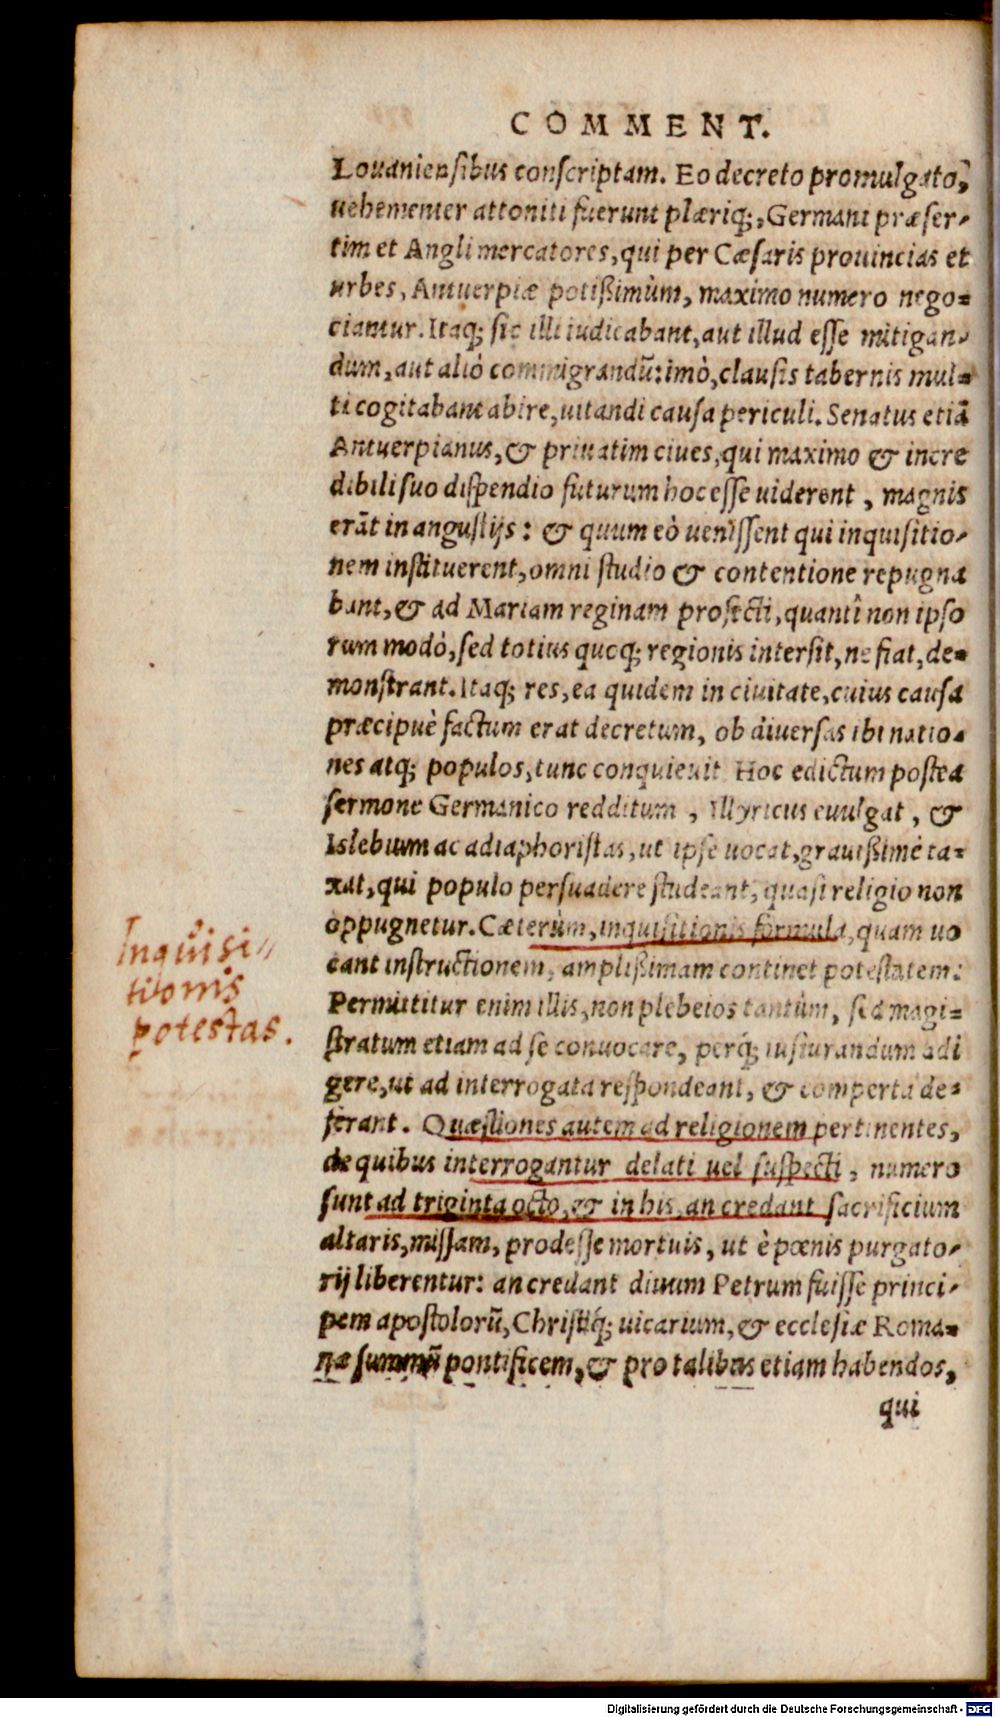 COMMENT.
Louaniensibus conscriptam. Eo decreto promulgato,
uehementer attoniti fuerunt plæriq;, Germani præser-
tim et Angli mercatores, qui per Cæsaris prouincias et
urbes, Antuerpiæ potißimùm, maximo numero nego-
ciantur. Itaq; sic illi iudicabant, aut illud esse mitigan-
dum, aut aliò commigrandũ: imò, clausis tabernis mul-
ti cogitabant abire, uitandi causa periculi. Senatus etiã
Antuerpianus, & priuatim ciues, qui maximo & incre
dibili suo dispendio futurum hoc esse uiderent, magnis
erãt in angustijs: & quum eò uenissent qui inquisitio-
nem instituerent, omni studio & contentione repugna
bant, & ad Mariam reginam profecti, quantì non ipso
rum modò, sed totius quoq; regionis intersit, ne fiat, de-
monstrant. Itaq; res, ea quidem in ciuitate, cuius causa
præcipuè factum erat decretum, ob diuersas ibi natio-
nes atq; populos, tunc conquieuit. Hoc edictum postea
sermone Germanico redditum, Illyricus euulgat, &
Islebium ac adiaphoristas, ut ipse uocat, grauißimè ta-
xat, qui populo persuadere studeant, quasi religio non
oppugnetur. Cæterùm, inquisitionis formula, quam uo
cant instructionem, amplißimam continet potestatem:
Permittitur enim illis, non plebeios tantùm, sed magi-
stratum etiam ad se conuocare, perq́; iusiurandum adi
gere, ut ad interrogata respondeant, & comperta de-
ferant. Quæstiones autem ad religionem pertinentes,
de quibus interrogantur delati uel suspecti, numero
sunt ad triginta octo, & in his, an credant sacrificium
altaris, missam, prodesse mortuis, ut è pœnis purgato-
rij liberentur: an credant diuum Petrum fuisse princi-
pem apostolorũ, Christiq́; uicarium, & ecclesiæ Roma-
næ summũ pontificem, & pro talibus etiam habendos,
qui
Inquisi-
tionis
potestas.
Digitalisierung gefördert durch die Deutsche Forschungsgemeinschaft - DFG